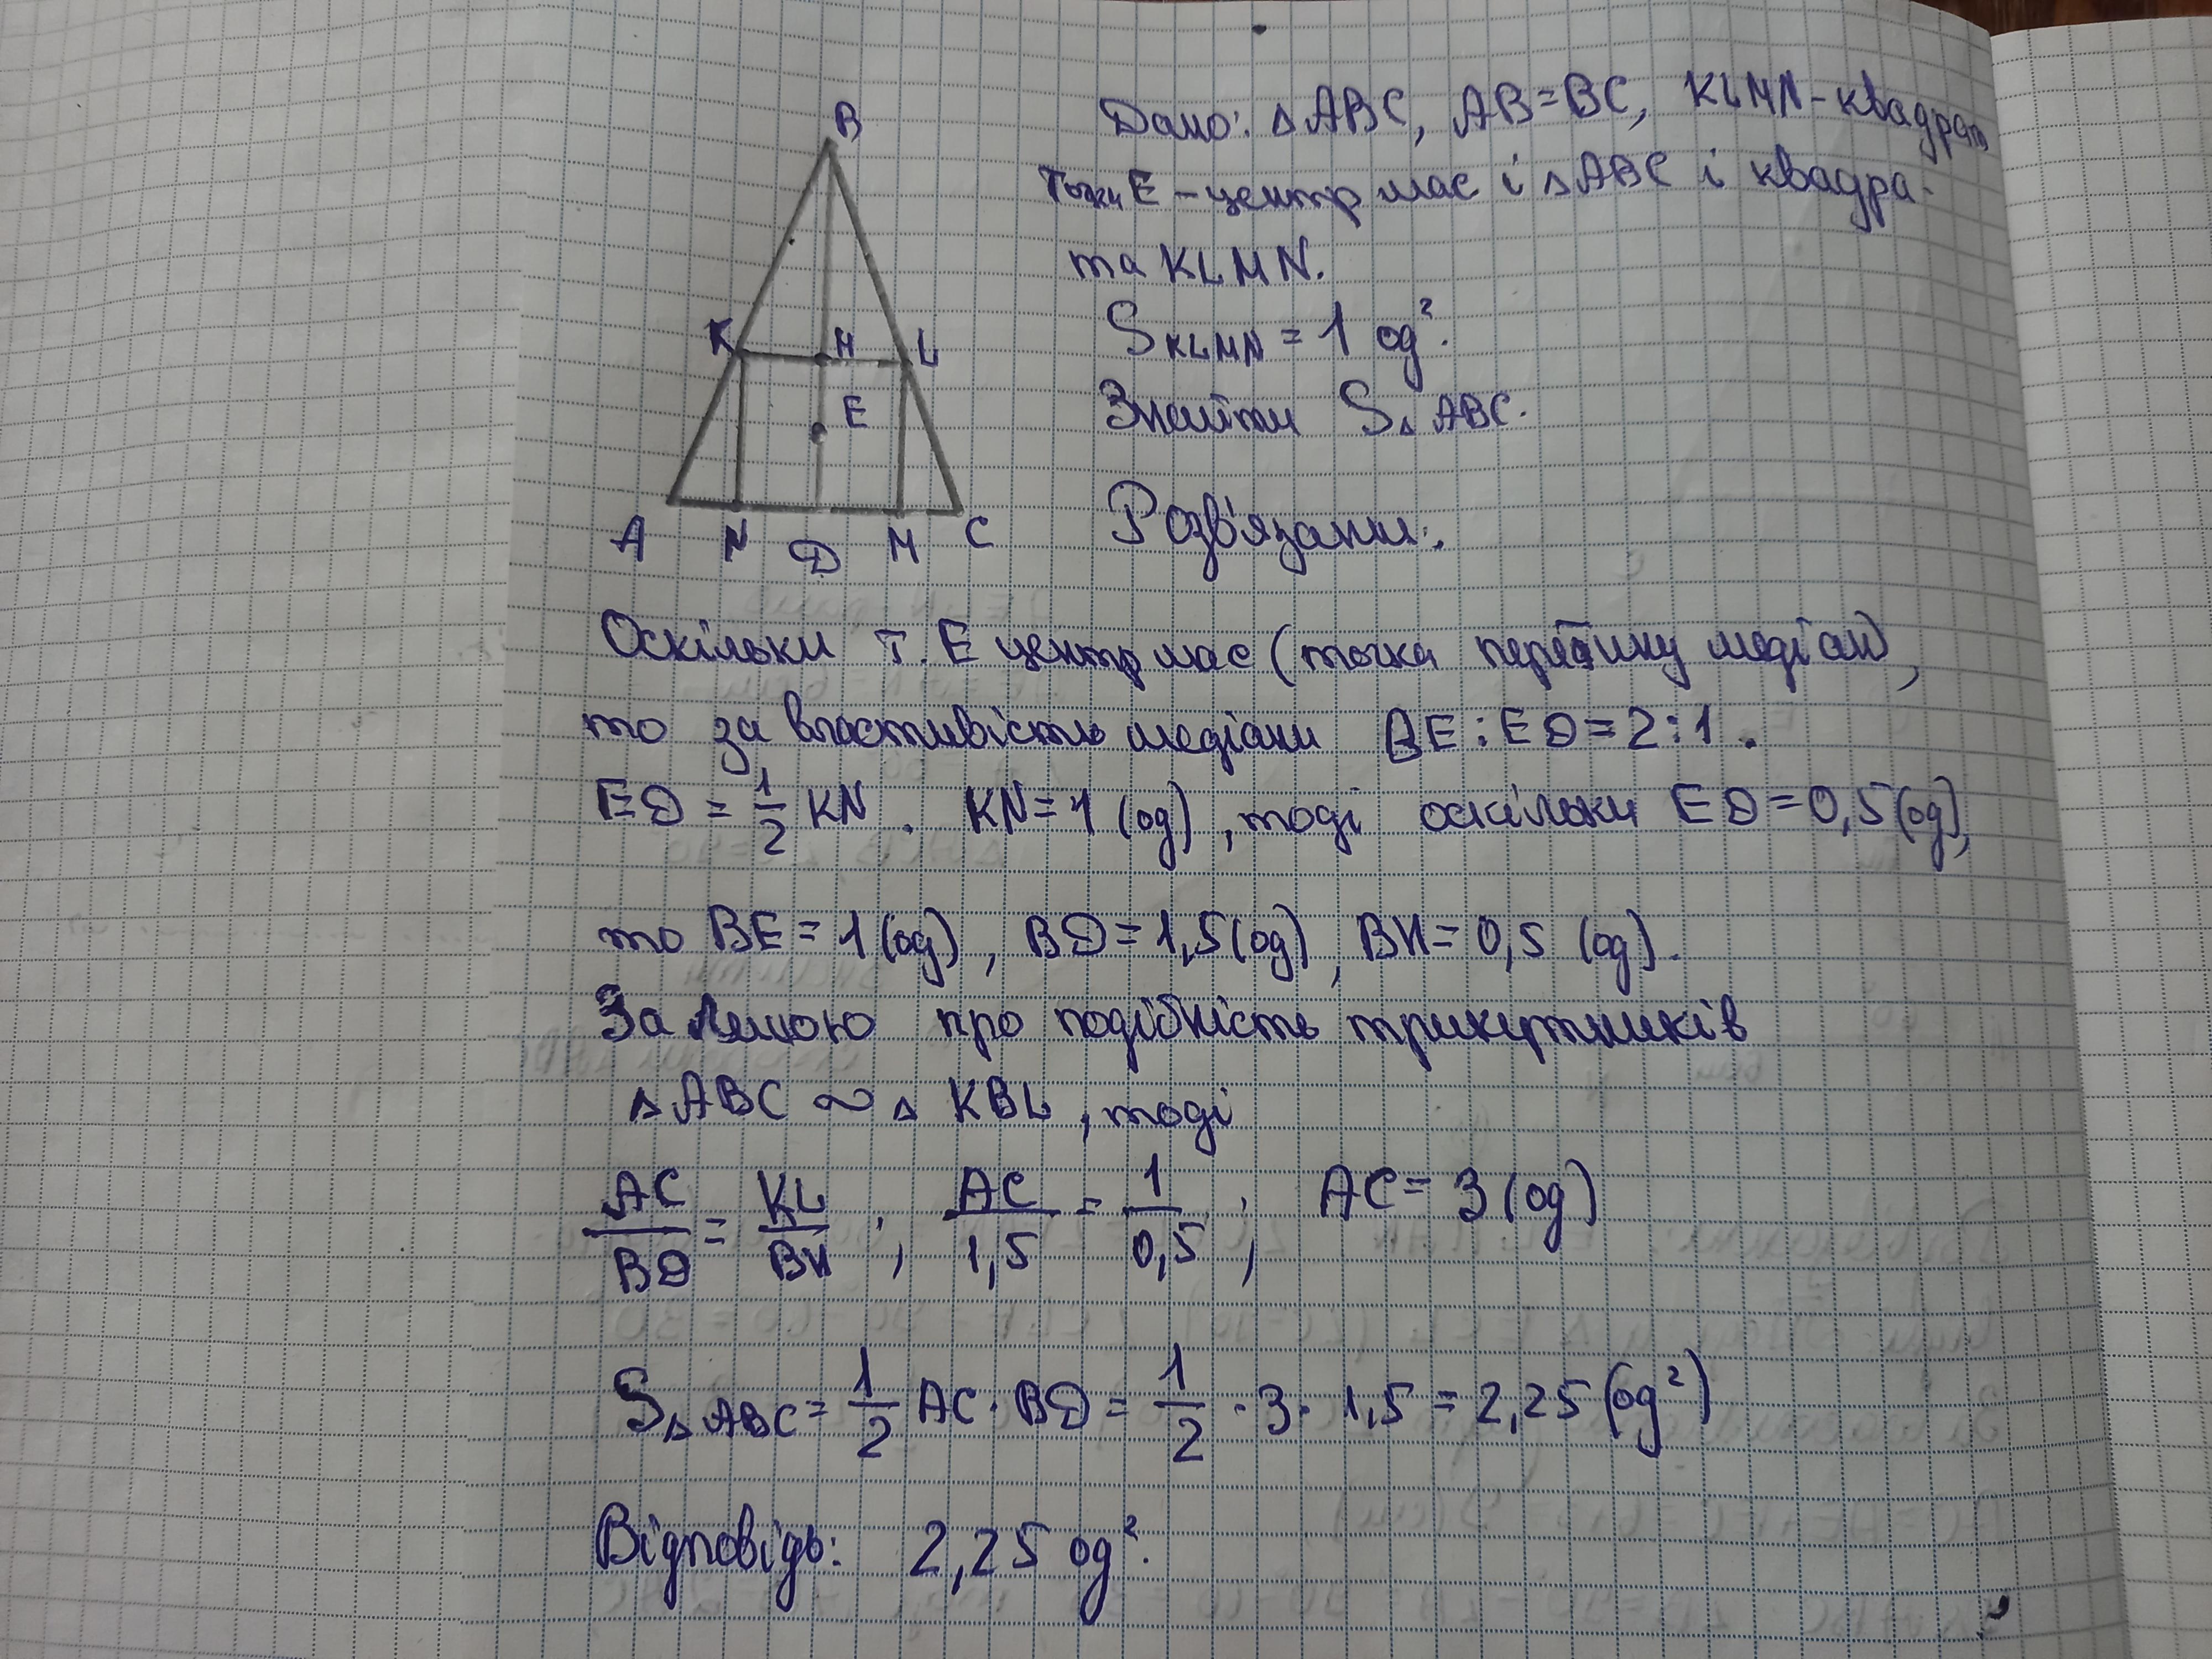 B
K H L
E
A N D M C
Дано: △ABC, AB=BC, KLMN-квадрат
Точка E - центр мас і △ABC і квадра-
та KLMN.
S KLMN = 1 од².
Знайти S△ABC.
Розв'язання:
Оскільки т. E центр мас (точка перетину медіан),
то за властивістю медіани BE:ED=2:1.
ED = 1/2 KN. KN=1 (од), тоді оскільки ED=0,5 (од),
то BE=1(од), BD=1,5(од), BH=0,5 (од).
За Лемою про подібність трикутників
△ABC ∾ △ KBL, тоді
AC/BD = KL/BH ; AC/1,5 = 1/0,5 ; AC=3(од)
S△ABC = 1/2 AC·BD = 1/2 · 3 · 1,5 = 2,25 (од²)
Відповідь: 2,25 од².